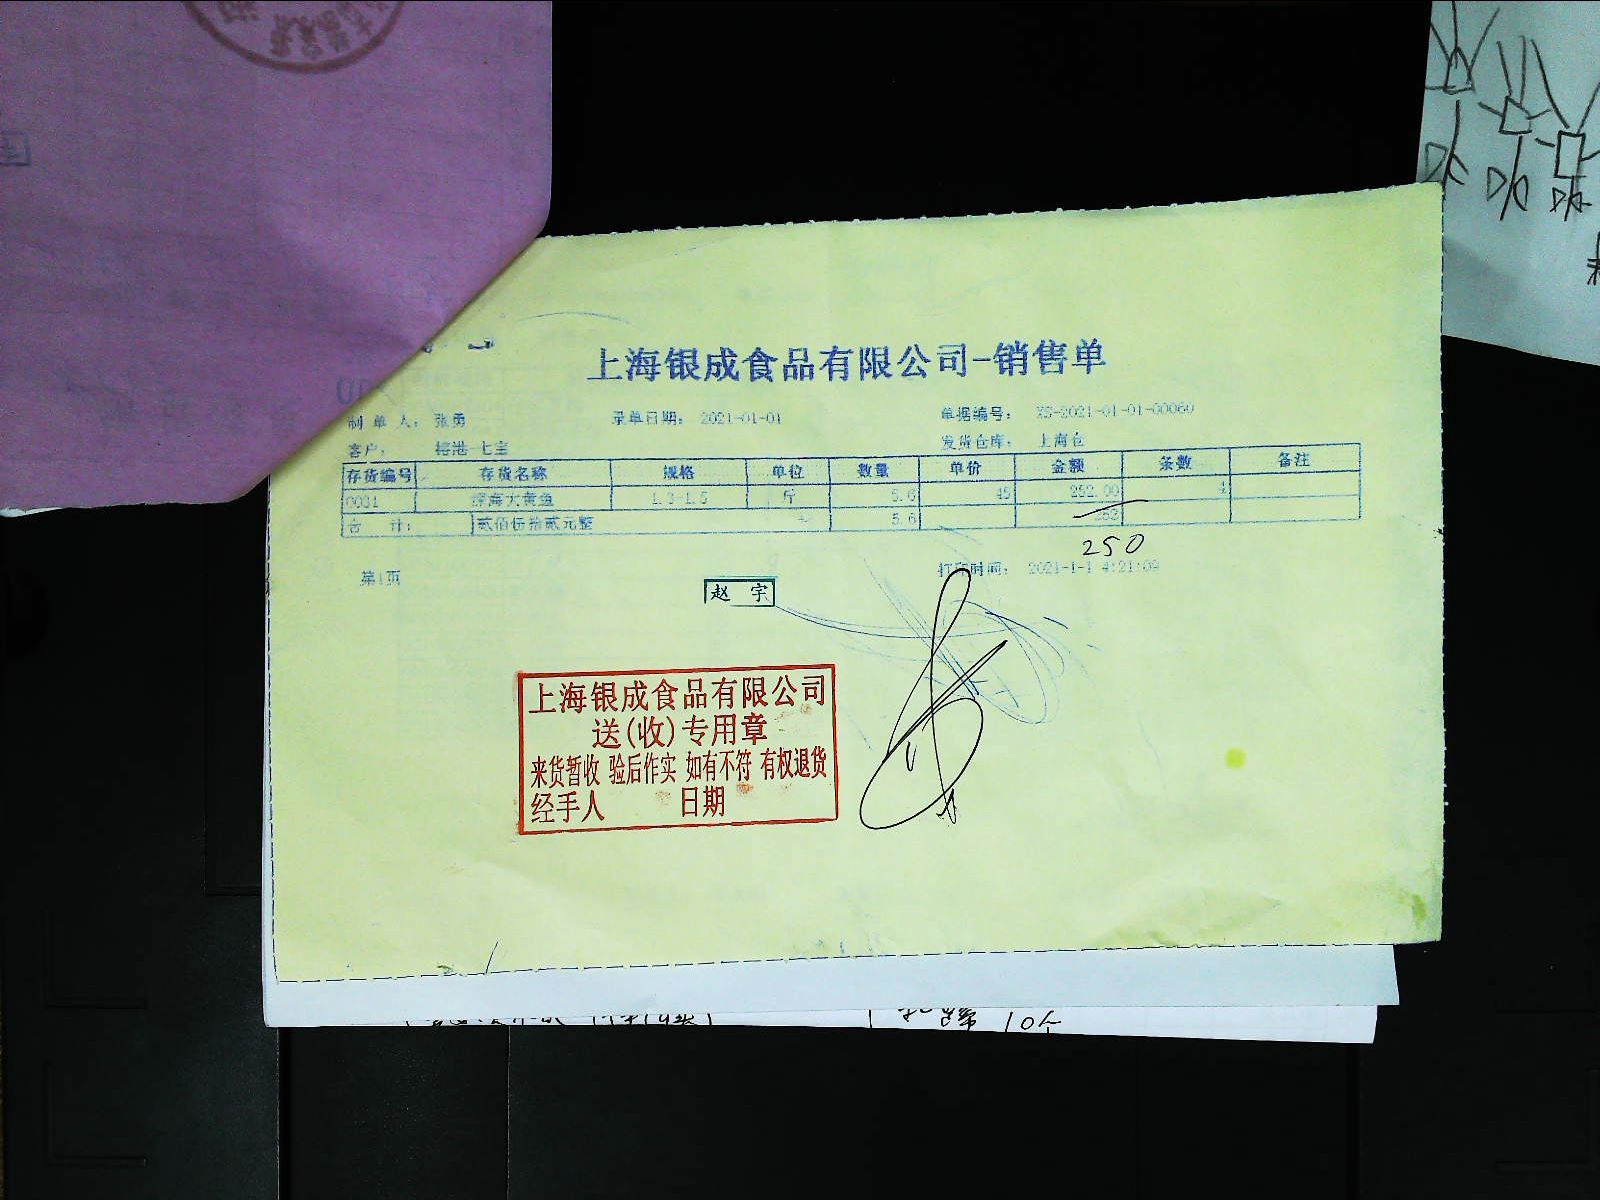 上海银成食品有限公司-销售单
制单人: 张勇 录单日期: 2021-01-01 单据编号: XS-2021-01-01-00060
客户: 榕港 七宝 发货仓库: 上海仓
存货编号 存货名称 规格 单位 数量 单价 金额 条数 备注
0031 深海大黄鱼 1.3-1.5 斤 5.6 45 252.00 4
合 计: 贰佰伍拾贰元整 5.6 252
250
第1页 打印时间: 2021-1-1 4:21:09
赵 宇
上海银成食品有限公司
送(收)专用章
来货暂收 验后作实 如有不符 有权退货
经手人 日期
10个